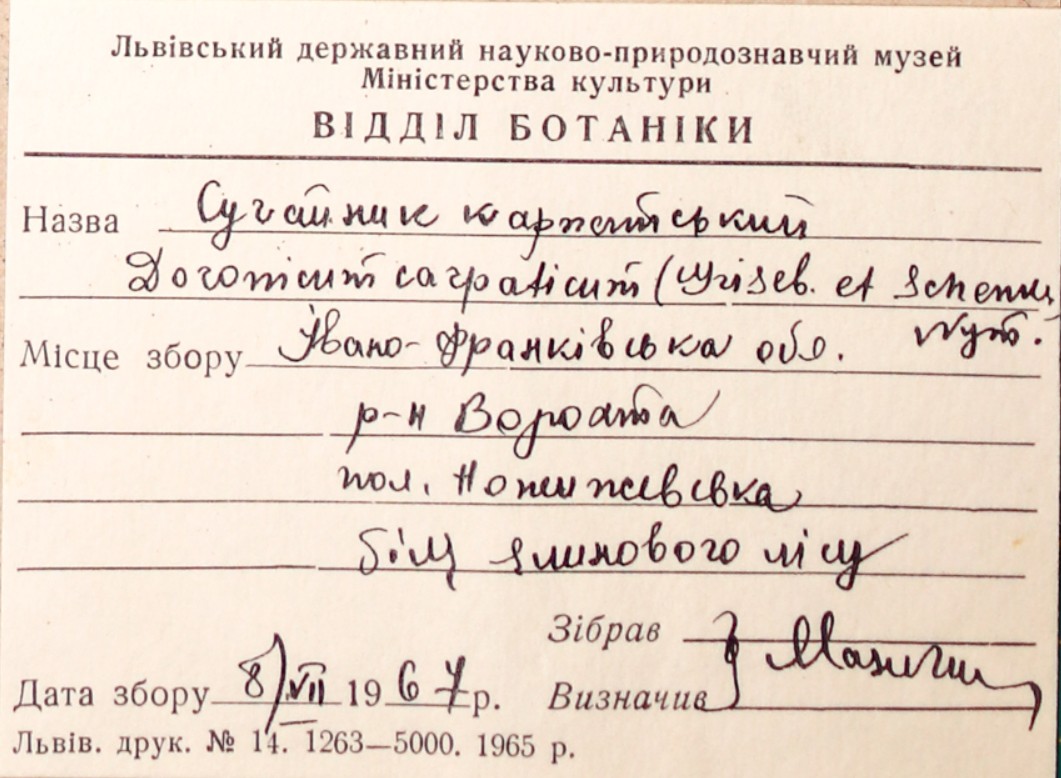 Львівський державний науково-природознавчий музей
Міністерства культури
ВІДДІЛ БОТАНІКИ
Назва Сугайник карпатський
Doronicum carpaticum (Griseb. et Schenk)
Nym.
Місце збору Івано-Франківська обл.
р-н Ворохта
пол. Пожижевська
біля ялинового лісу
Зібрав
Дата збору 8/VII 1967р. Визначив
Львів. друк. № 14. 1263—5000. 1965 р.